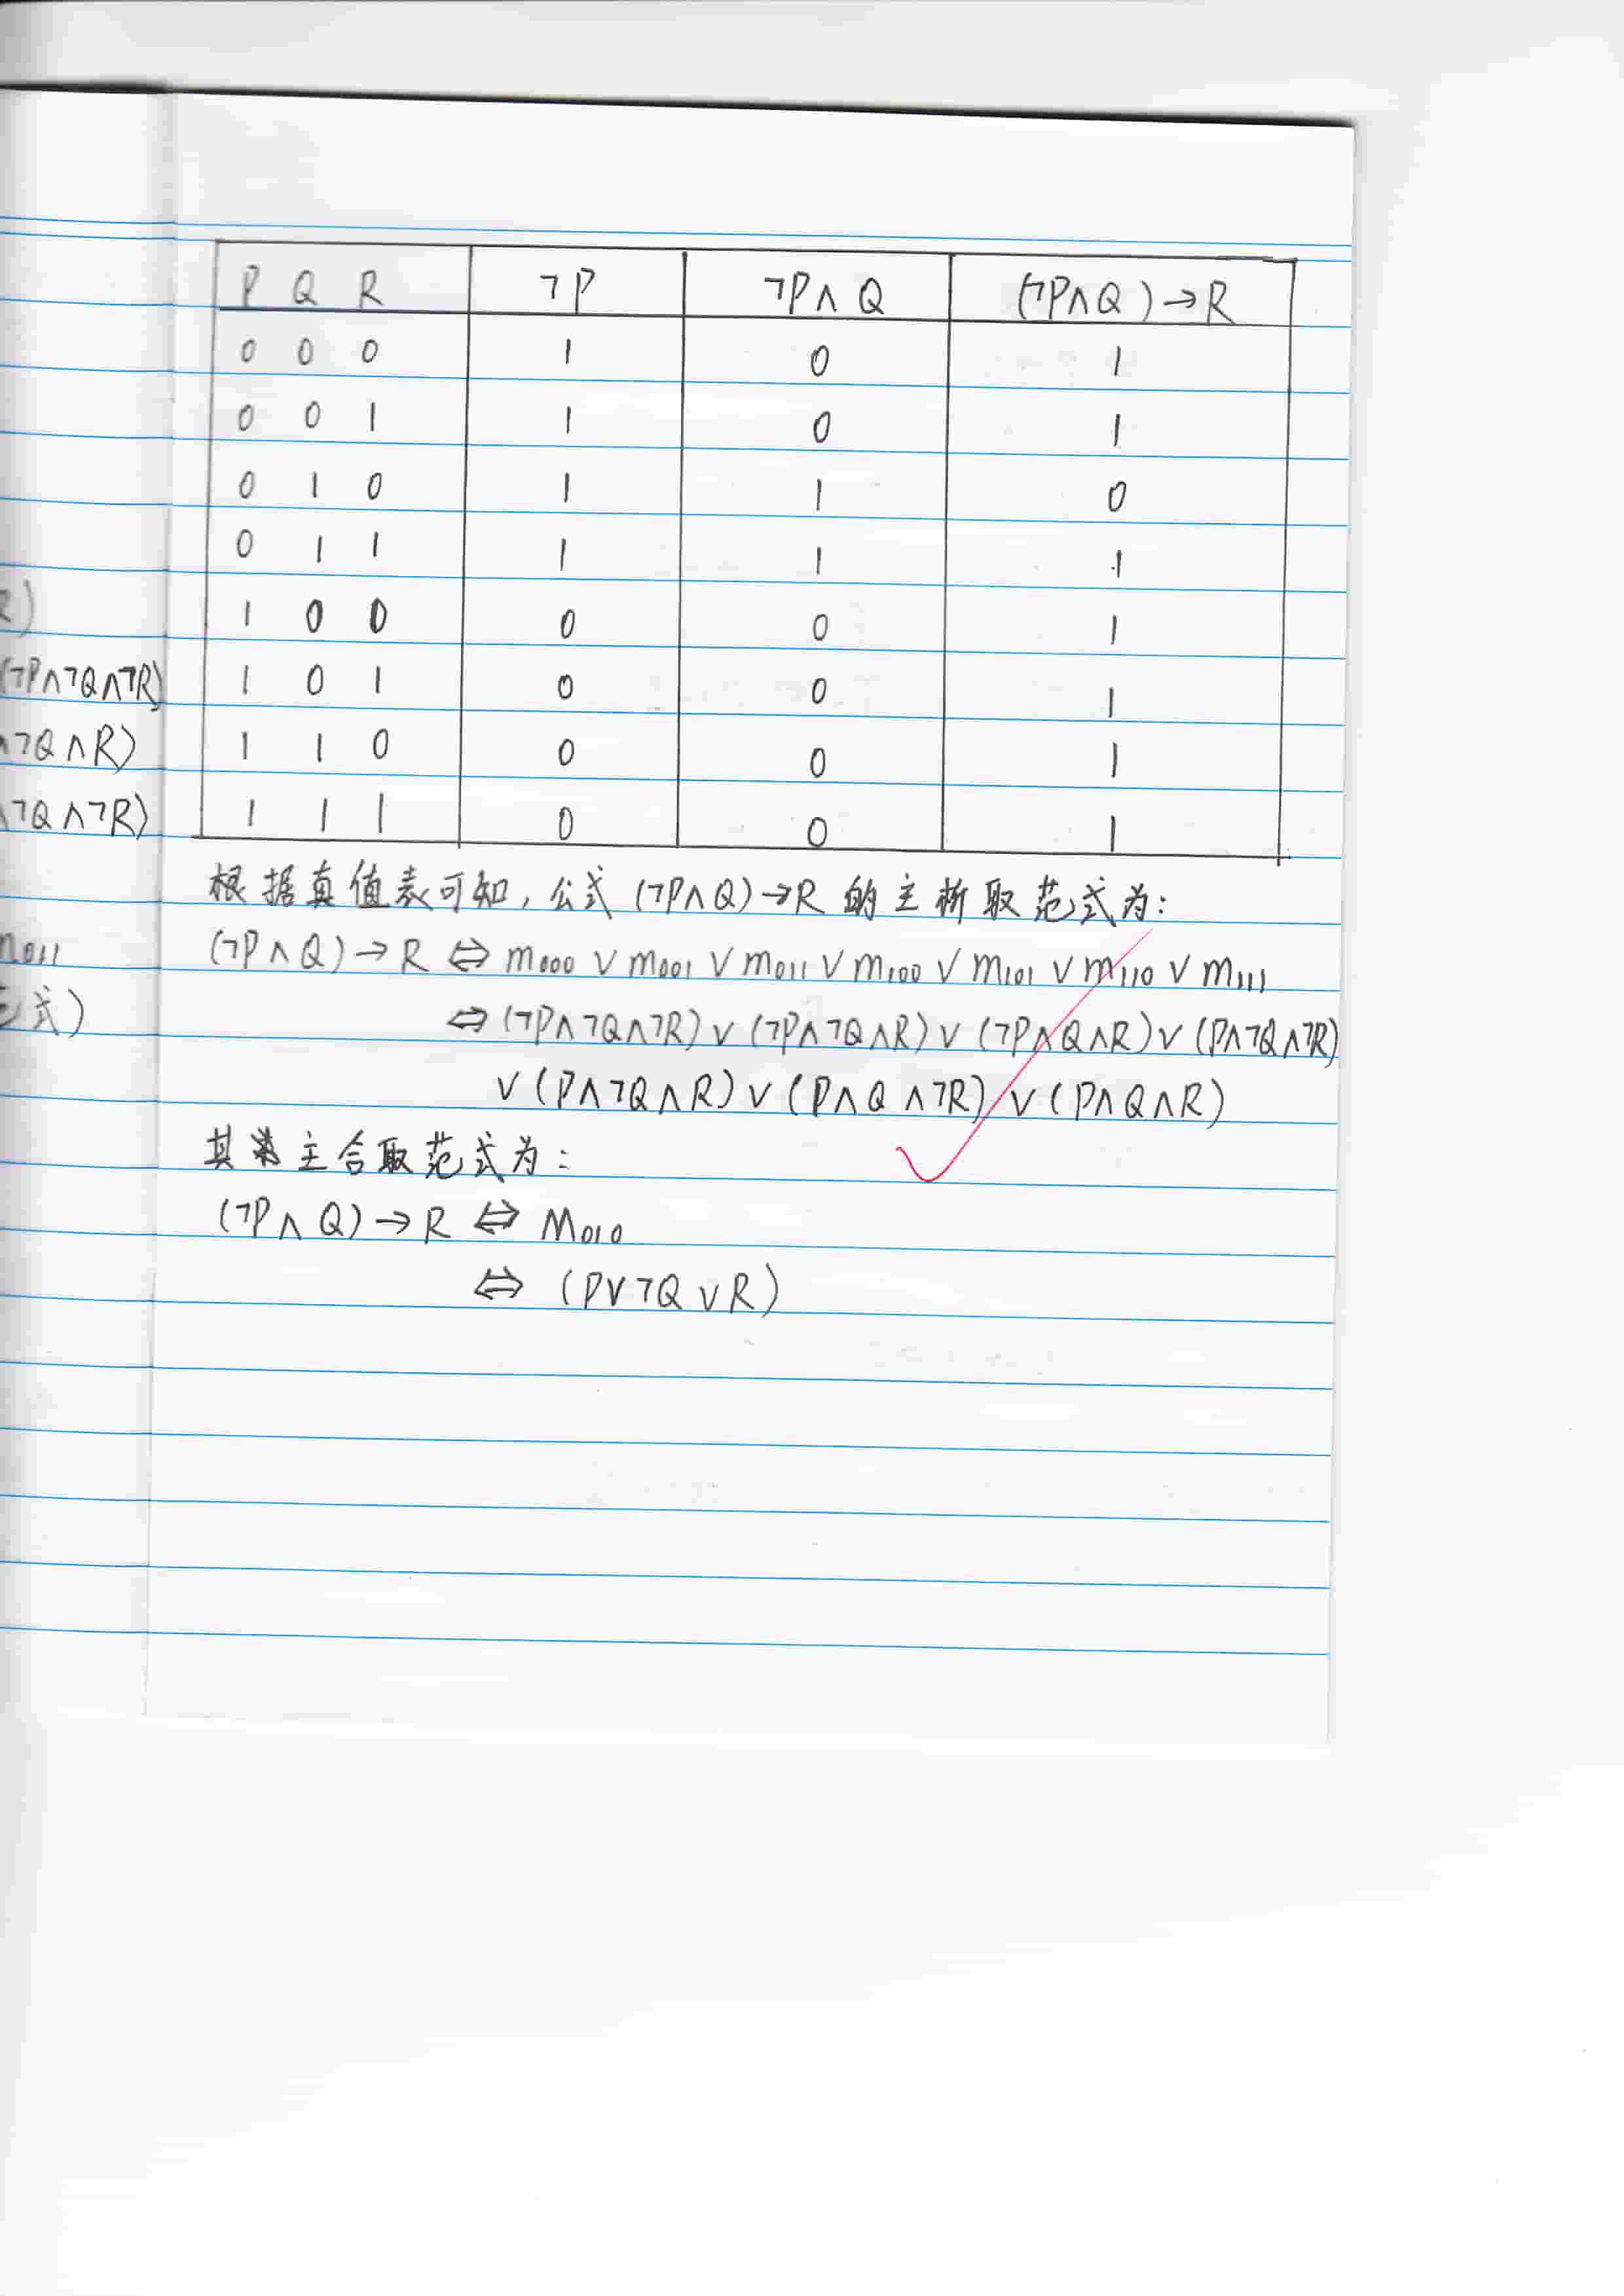 P Q R ¬P ¬P∧Q (¬P∧Q)→R
0 0 0 1 0 1
0 0 1 1 0 1
0 1 0 1 1 0
0 1 1 1 1 1
1 0 0 0 0 1
1 0 1 0 0 1
1 1 0 0 0 1
1 1 1 0 0 1
根据真值表可知,公式(¬P∧Q)→R的主析取范式为:
(¬P∧Q)→R⇔m000∨m001∨m011∨m100∨m101∨m110∨m111
⇔(¬P∧¬Q∧¬R)∨(¬P∧¬Q∧R)∨(¬P∧Q∧R)∨(P∧¬Q∧¬R)
∨(P∧¬Q∧R)∨(P∧Q∧¬R)∨(P∧Q∧R)
其主合取范式为:
(¬P∧Q)→R⇔M010
⇔(P∨¬Q∨R)
R)
(¬P∧¬Q∧¬R)
∧¬Q∧R)
∧¬Q∧¬R)
m011
式)